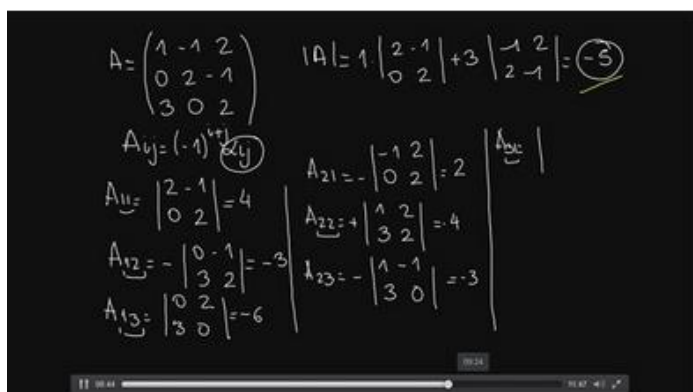 A = ( 1 -1 2
0 2 -1
3 0 2 )
|A| = 1 · | 2 -1
0 2 | + 3 | -1 2
2 -1 | = -5
Aij = (-1)^i+j αij
A11 = | 2 -1
0 2 | = 4
A12 = - | 0 -1
3 2 | = -3
A13 = | 0 2
3 0 | = -6
A21 = - | -1 2
0 2 | = 2
A22 = + | 1 2
3 2 | = -4
A23 = - | 1 -1
3 0 | = -3
A31 = |
09:24
11:47